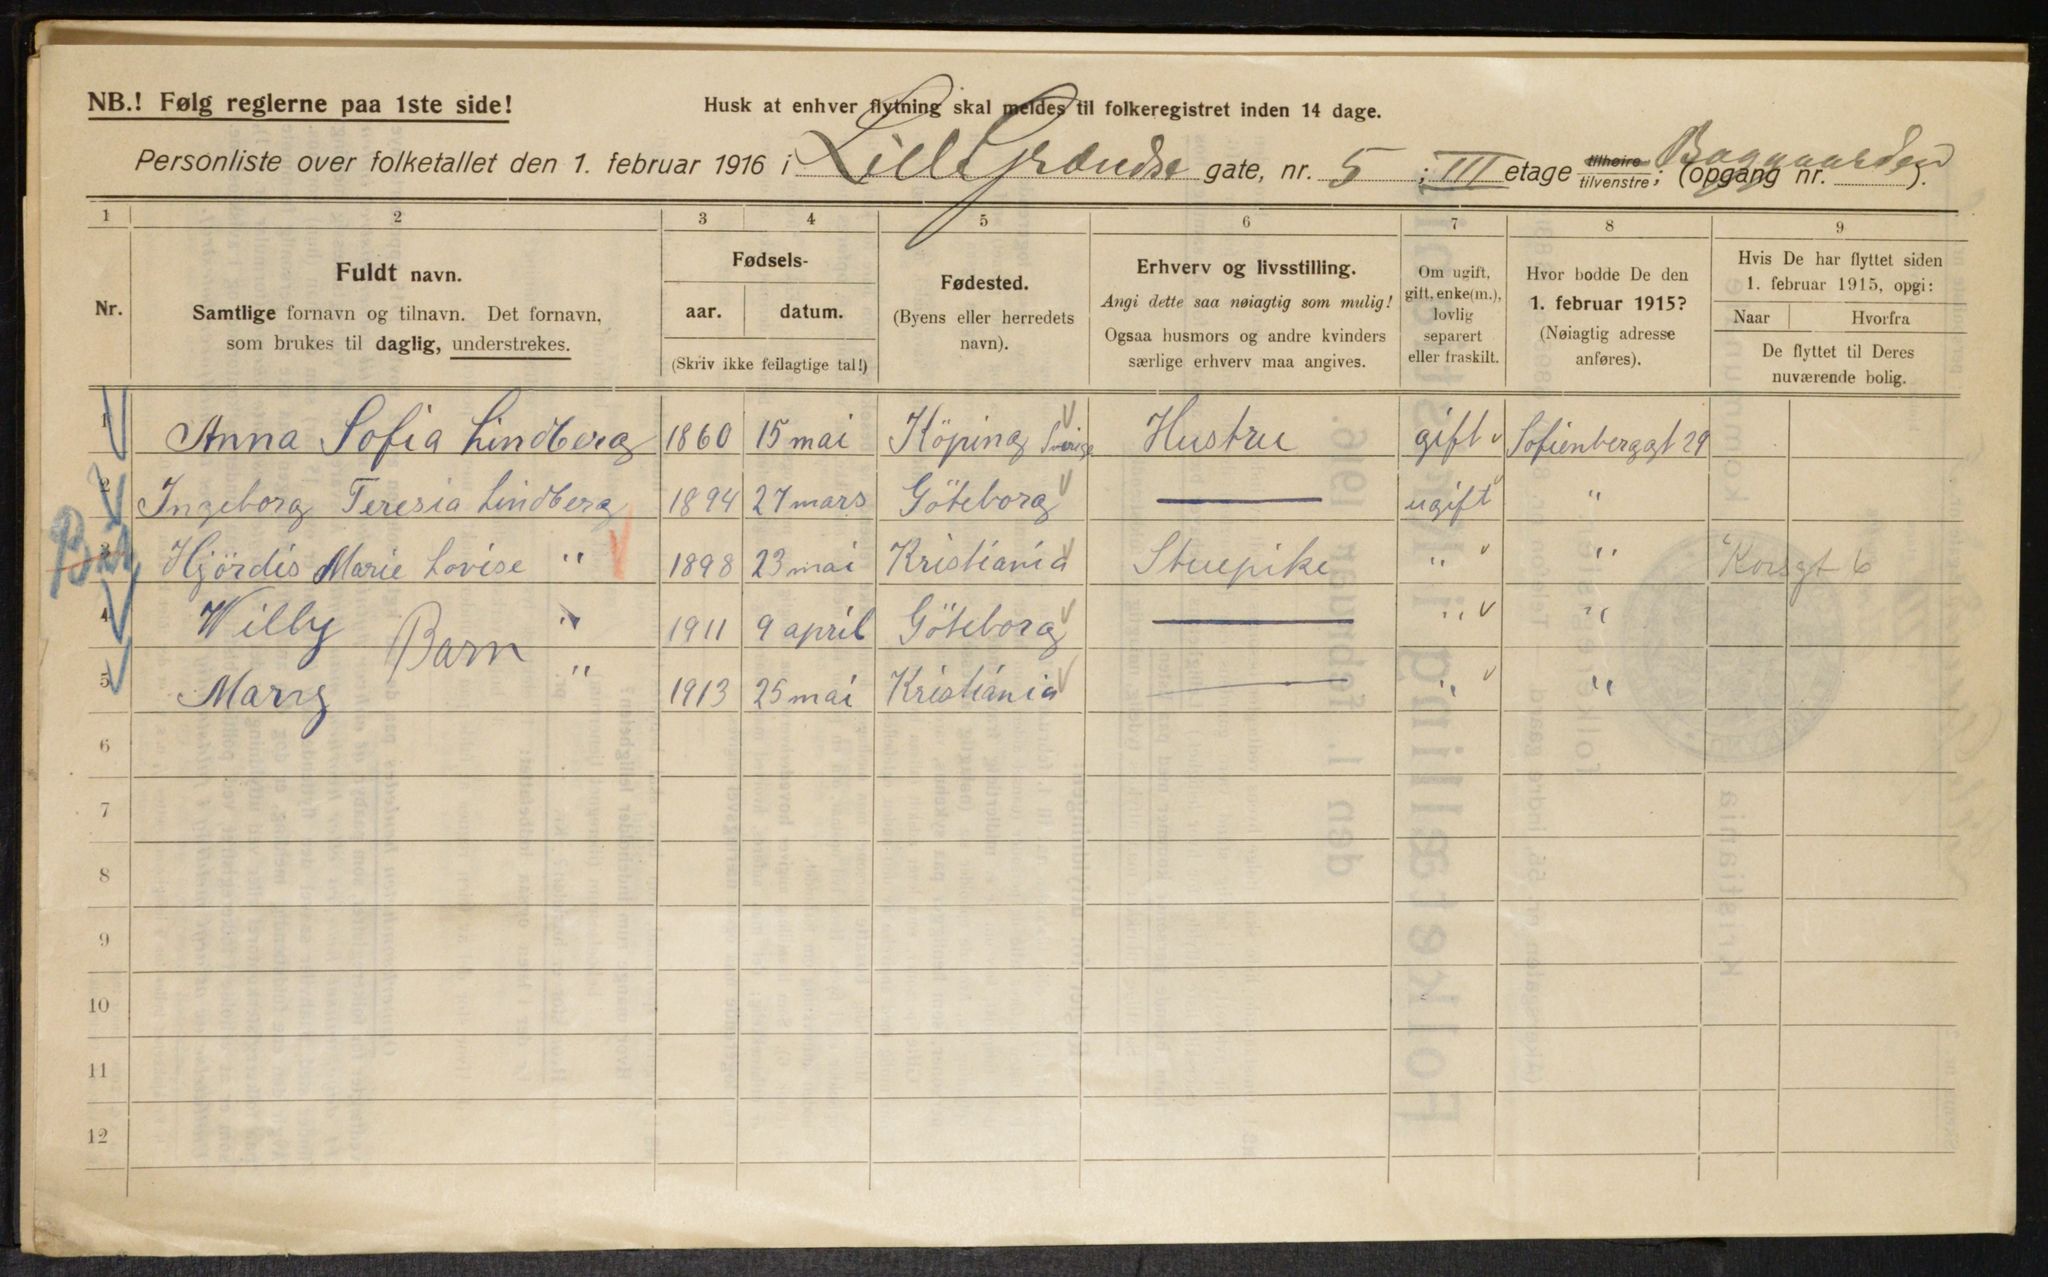 NB.! Følg reglerne paa 1ste side!
Husk at enhver flytning skal meldes til folkeregistret inden 14 dage.
Personliste over folketallet den 1. februar 1916 i Lille Grændse gate, nr. 5 ; III etage tilhøire tilvenstre; (opgang nr. ). Baggaarden
1 2 3 4 5 6 7 8 9
Nr.
Fuldt navn.
Samtlige fornavn og tilnavn. Det fornavn,
som brukes til daglig, understrekes.
Fødsels-
aar. datum.
(Skriv ikke feilagtige tal!)
Fødested.
(Byens eller herredets
navn).
Erhverv og livsstilling.
Angi dette saa nøiagtig som mulig!
Ogsaa husmors og andre kvinders
særlige erhverv maa angives.
Om ugift,
gift, enke(m.),
lovlig
separert
eller fraskilt.
Hvor bodde De den
1. februar 1915?
(Nøiagtig adresse
anføres).
Hvis De har flyttet siden
1. februar 1915, opgi:
Naar Hvorfra
De flyttet til Deres
nuværende bolig.
1 Anna Sofia Lindberg 1860 15 mai Köping Sverige Hustru gift Sofienberggt 29
2 Ingeborg Teresia Lindberg 1894 27 mars Göteborg — ugift "
3 Hjördis Marie Lovise " 1898 23 mai Kristiania Stuepike " " Korsgt 6
4 Willy Barn " 1911 9 april Göteborg — " "
5 Marng " 1913 25 mai Kristiania — " "
6
7
8
9
10
11
12